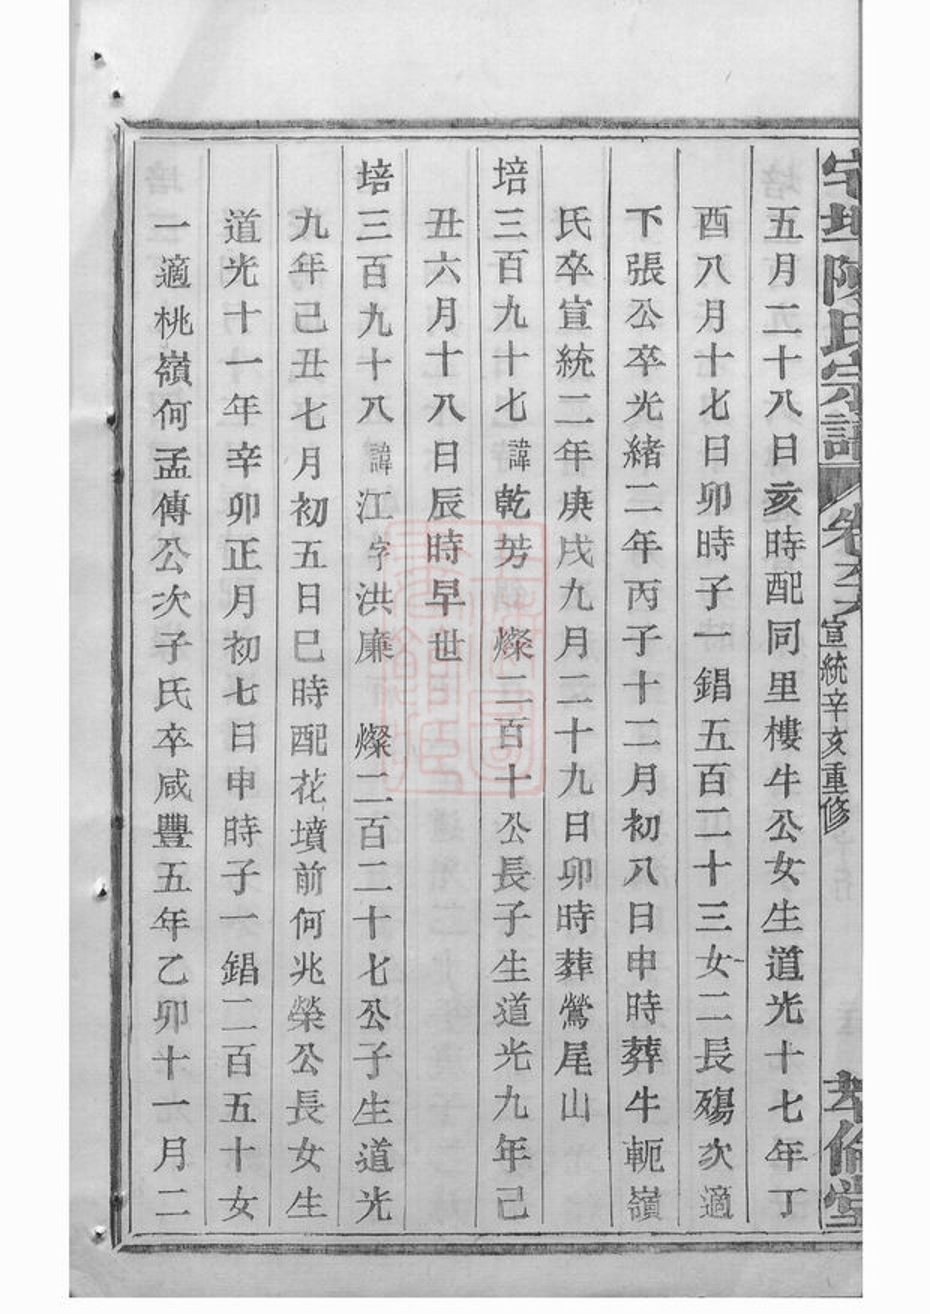 陳氏宗譜
宣統辛亥重修
倫堂
五月二十八日亥時配同里樓牛公女生道光十七年丁
酉八月十七日卯時子一錩五百二十三女二長殤次適
下張公卒光緒二年丙子十二月初八日申時葬牛軛嶺
氏卒宣統二年庚戌九月二十九日卯時葬鶯尾山
培三百九十七諱乾艻燦二百十公長子生道光九年己
丑六月十八日辰時早世
培三百九十八諱江字洪廉 燦二百二十七公子生道光
九年己丑七月初五日巳時配花墳前何兆榮公長女生
道光十一年辛卯正月初七日申時子一錩二百五十女
一適桃嶺何孟傳公次子氏卒咸豐五年乙卯十一月二